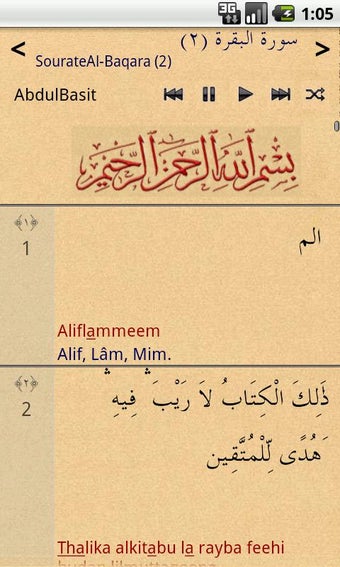 3G 1:05
< سورة البقرة (٢) >
SourateAl-Baqara (2)
AbdulBasit
بِسْمِ ٱللَّهِ ٱلرَّحْمَٰنِ ٱلرَّحِيمِ
﴿١﴾
1
الم
Aliflammeem
Alif, Lâm, Mim.
﴿٢﴾
2
ذَلِكَ الْكِتَابُ لاَ رَيْبَ ۛ فِيهِ ۛ
هُدًى لِّلْمُتَّقِين
Thalika alkitabu la rayba feehi
hudan lilmuttaqeena